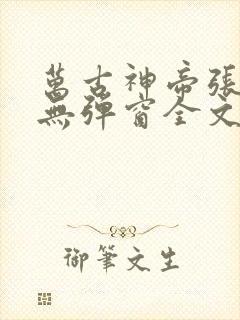 萬古神帝張
無彈窗全文
御筆文生